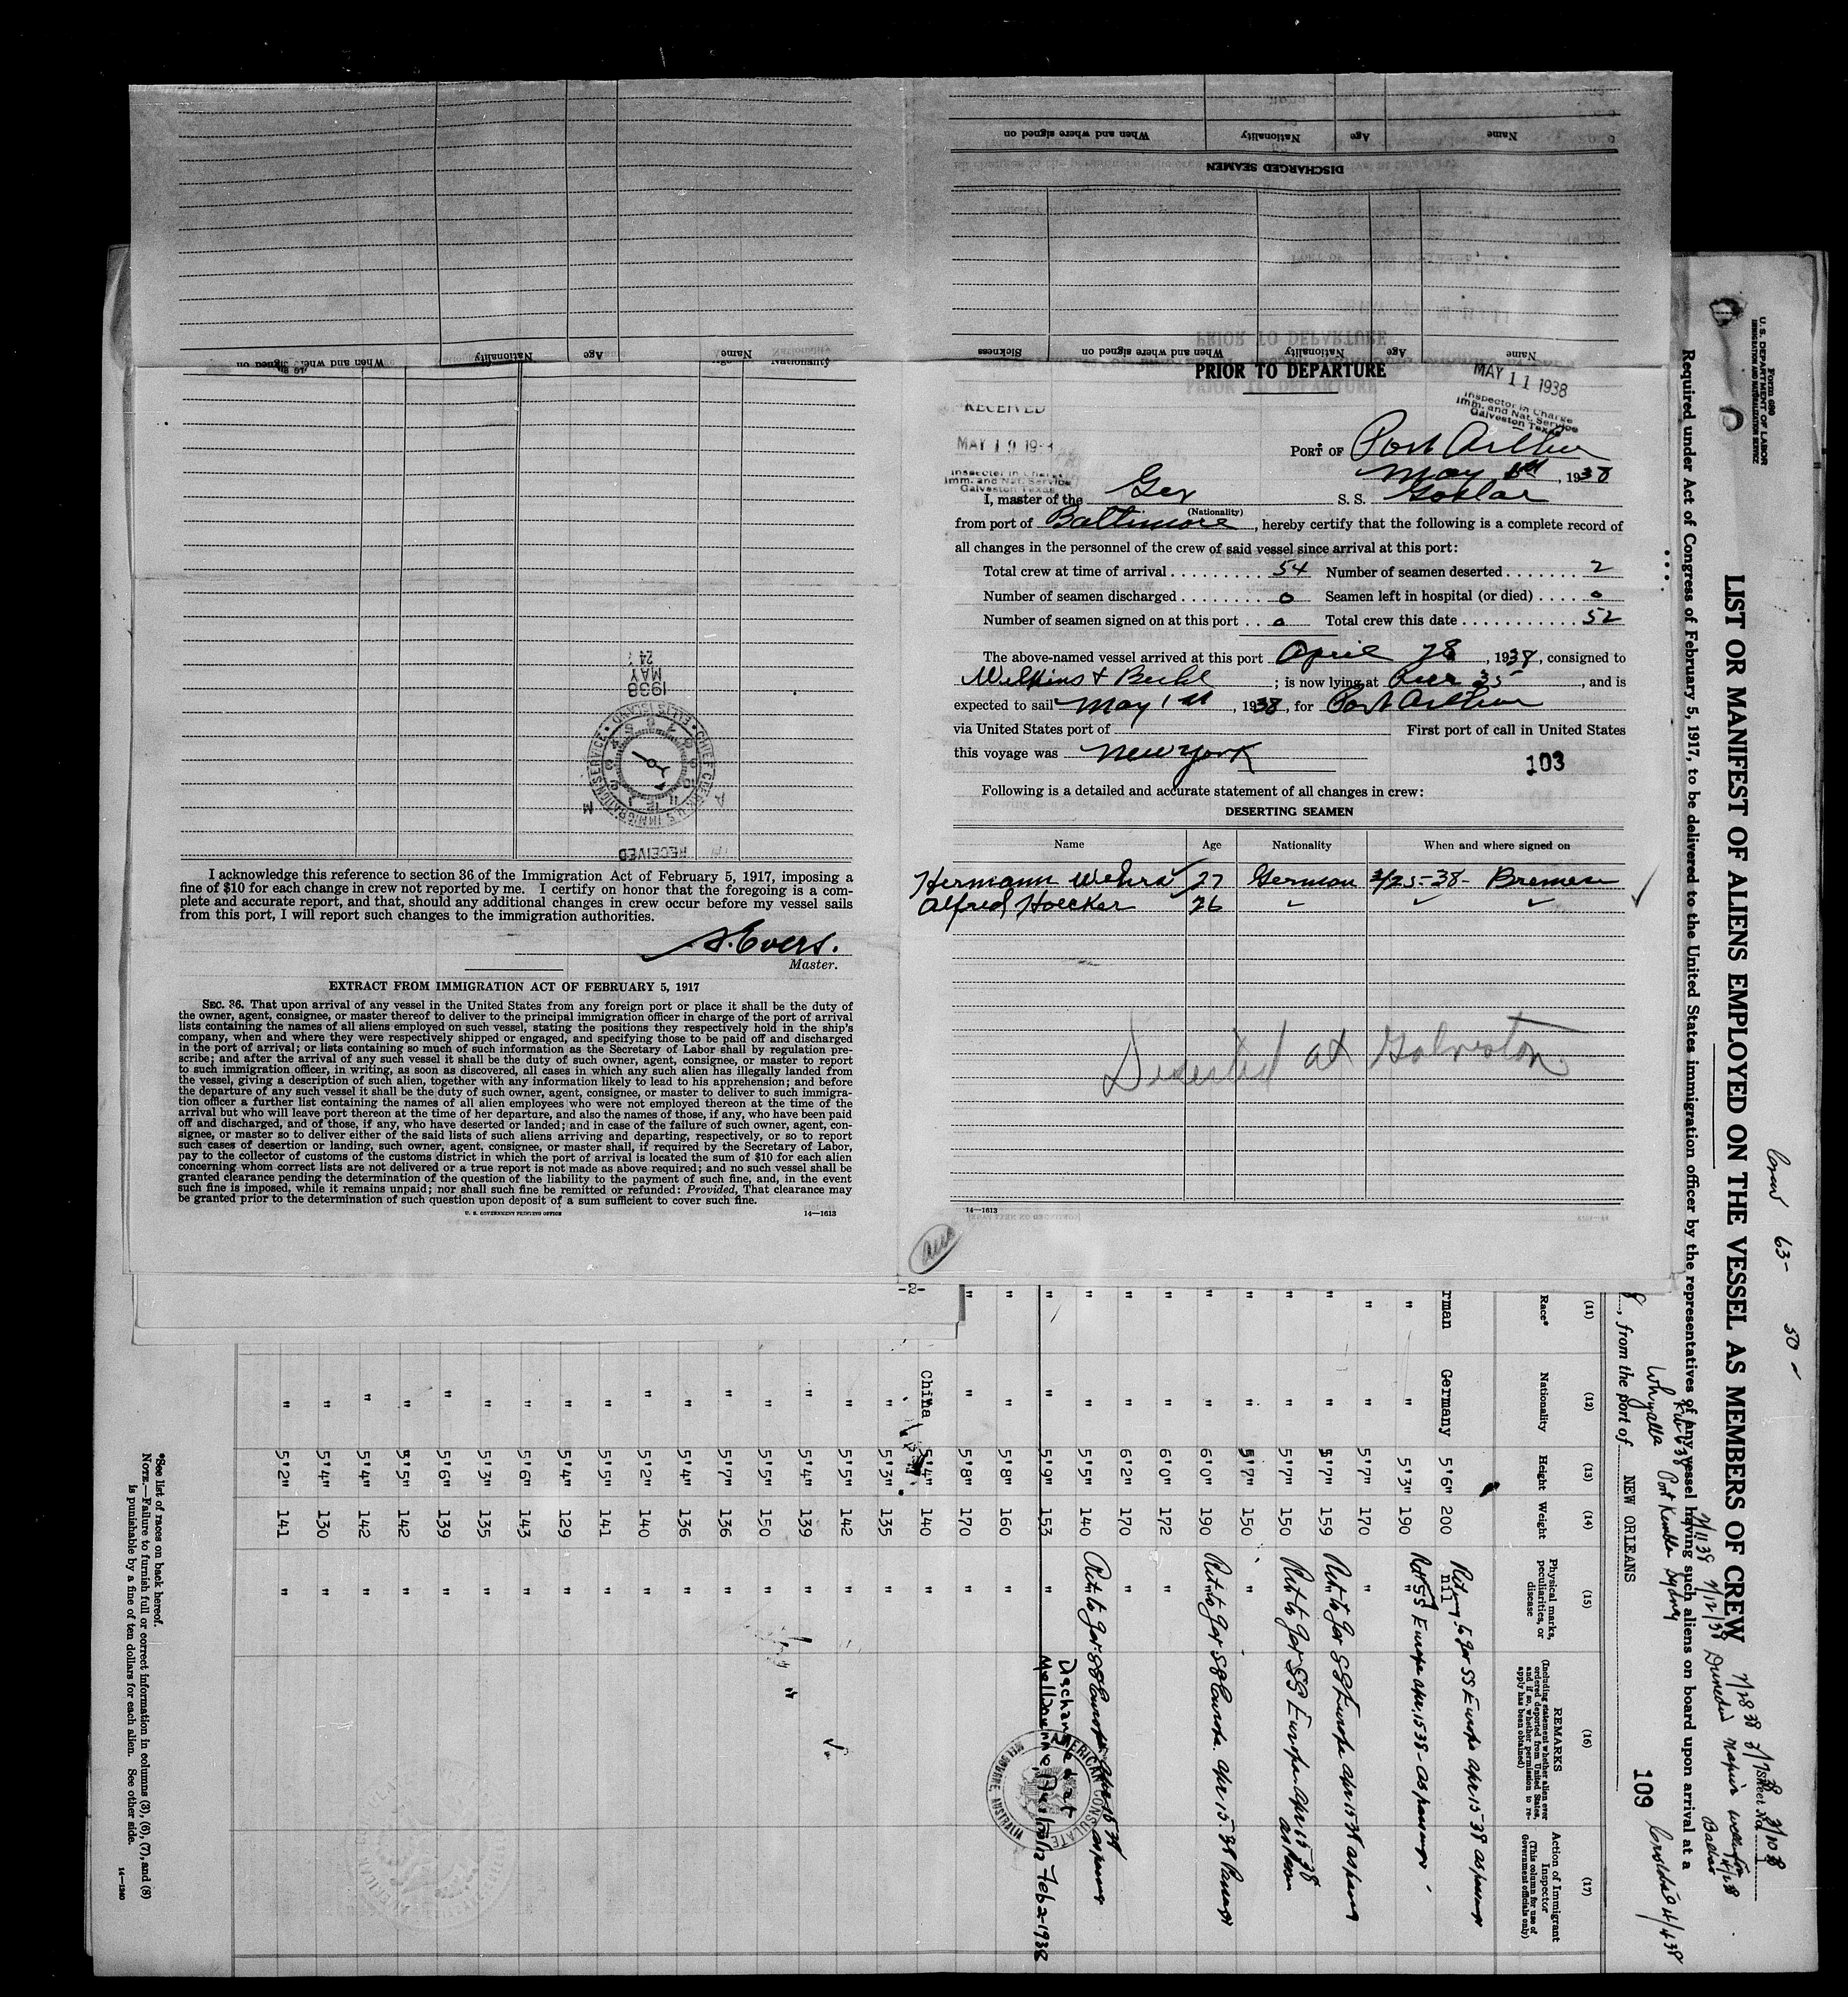 Name Age Nationality When and where signed on
DISCHARGED SEAMEN
Name Age Nationality When and where signed on Sickness
Nationality Name Age Nationality When and where signed on
PRIOR TO DEPARTURE
MAY 11 1938
Inspector in Charge
Imm. and Nat. Service
Galveston Texas
RECEIVED
MAY 19
Inspector in Charge
Imm. and Nat. Service
Galveston Texas
PORT OF Port Arthur
May 1st, 1938
I, master of the Ger S. S. Goslar
(Nationality)
from port of Baltimore, hereby certify that the following is a complete record of
all changes in the personnel of the crew of said vessel since arrival at this port:
Total crew at time of arrival .......... 54 Number of seamen deserted ....... 2
Number of seamen discharged ........ 0 Seamen left in hospital (or died) .... 0
Number of seamen signed on at this port .. 0 Total crew this date ............ 52
The above-named vessel arrived at this port April 28, 1938, consigned to
Wilkins & ; is now lying at Pier 35, and is
expected to sail May 1st, 1938, for Port Arthur
via United States port of First port of call in United States
this voyage was New York
103
Following is a detailed and accurate statement of all changes in crew:
DESERTING SEAMEN
Name Age Nationality When and where signed on
Hermann Wehrs 27 German 3/25-38- Bremen
Alfred Hoecker 26 " " "
Deserted at Galveston
14—1613
RECEIVED
CHIEF CLERK U.S. IMMIGRATION SERVICE ELLIS ISLAND
1938
MAY
24
I acknowledge this reference to section 36 of the Immigration Act of February 5, 1917, imposing a
fine of $10 for each change in crew not reported by me. I certify on honor that the foregoing is a com-
plete and accurate report, and that, should any additional changes in crew occur before my vessel sails
from this port, I will report such changes to the immigration authorities.
A. Evers.
Master.
EXTRACT FROM IMMIGRATION ACT OF FEBRUARY 5, 1917
SEC. 36. That upon arrival of any vessel in the United States from any foreign port or place it shall be the duty of
the owner, agent, consignee, or master thereof to deliver to the principal immigration officer in charge of the port of arrival
lists containing the names of all aliens employed on such vessel, stating the positions they respectively hold in the ship's
company, when and where they were respectively shipped or engaged, and specifying those to be paid off and discharged
in the port of arrival; or lists containing so much of such information as the Secretary of Labor shall by regulation pre-
scribe; and after the arrival of any such vessel it shall be the duty of such owner, agent, consignee, or master to report
to such immigration officer, in writing, as soon as discovered, all cases in which any such alien has illegally landed from
the vessel, giving a description of such alien, together with any information likely to lead to his apprehension; and before
the departure of any such vessel it shall be the duty of such owner, agent, consignee, or master to deliver to such immigra-
tion officer a further list containing the names of all alien employees who were not employed thereon at the time of the
arrival but who will leave port thereon at the time of her departure, and also the names of those, if any, who have been paid
off and discharged, and of those, if any, who have deserted or landed; and in case of the failure of such owner, agent, con-
signee, or master so to deliver either of the said lists of such aliens arriving and departing, respectively, or so to report
such cases of desertion or landing, such owner, agent, consignee, or master shall, if required by the Secretary of Labor,
pay to the collector of customs of the customs district in which the port of arrival is located the sum of $10 for each alien
concerning whom correct lists are not delivered or a true report is not made as above required; and no such vessel shall be
granted clearance pending the determination of the question of the liability to the payment of such fine, and, in the event
such fine is imposed, while it remains unpaid; nor shall such fine be remitted or refunded: Provided, That clearance may
be granted prior to the determination of such question upon deposit of a sum sufficient to cover such fine.
U. S. GOVERNMENT PRINTING OFFICE 14—1613
-2-
Form 680
U. S. DEPARTMENT OF LABOR
IMMIGRATION AND NATURALIZATION SERVICE
63- 50
LIST OR MANIFEST OF ALIENS EMPLOYED ON THE VESSEL AS MEMBERS OF CREW
Required under Act of Congress of February 5, 1917, to be delivered to the United States immigration officer by the representatives of any vessel having such aliens on board upon arrival at a
Whyalla Port Kembla Sydney Dunedin Napier
Cristobal 4/4 38
8, from the port of NEW ORLEANS
109
(11) (12) (13) (14) (15) (16) (17)
Race* Nationality Height Weight Physical marks, peculiarities, or disease
REMARKS (Including statement whether alien ever ordered deported from United States, and if so, whether permission to reapply has been obtained)
Action of Immigrant Inspector (This column for use of Government officials only)
rman Germany 5'6" 200 nil Ret. to Ger SS Europa Apr. 15-38 as passenger
" " 5'3" 190 " Ret SS Europa Apr. 15 38 - as passenger
" " 5'7" 170 "
" " 5'7" 159 Ret. to Ger SS Europa Apr 15 38 as pass
" " 5'7" 150 Ret. to Ger SS Europa Apr 15 38 as pass
" " 5'7" 150 "
" " 6'0" 190 Ret. to Ger SS Europa. Apr. 15. 38 Passenger
" " 6'0" 172 "
" " 6'2" 170 "
" " 5'5" 140 Ret. to Ger. SS Europa Apr 15 38 as passenger
" " 5'9" 153 " Dechanged at Melbourne, Australia Feb 2-1938
AMERICAN CONSULATE MELBOURNE AUSTRALIA
" " 5'8" 160 "
" " 5'8" 170 "
China 5'4" 140 "
" 5'3" 135 "
" 5'5" 142 "
" 5'4" 139 "
" 5'5" 150 "
" 5'7" 136 "
" 5'4" 136 "
" 5'2" 140 "
" 5'5" 141 "
" 5'4" 129 "
" 5'6" 143 "
" 5'3" 135 "
" 5'6" 139 "
" 5'5" 142 "
" 5'4" 142 "
" 5'4" 130 "
" 5'2" 141 "
*See list of races on back hereof.
NOTE.—Failure to furnish full or correct information in columns (3), (6), (7), and (8)
is punishable by a fine of ten dollars for each alien. See other side.
14—1240